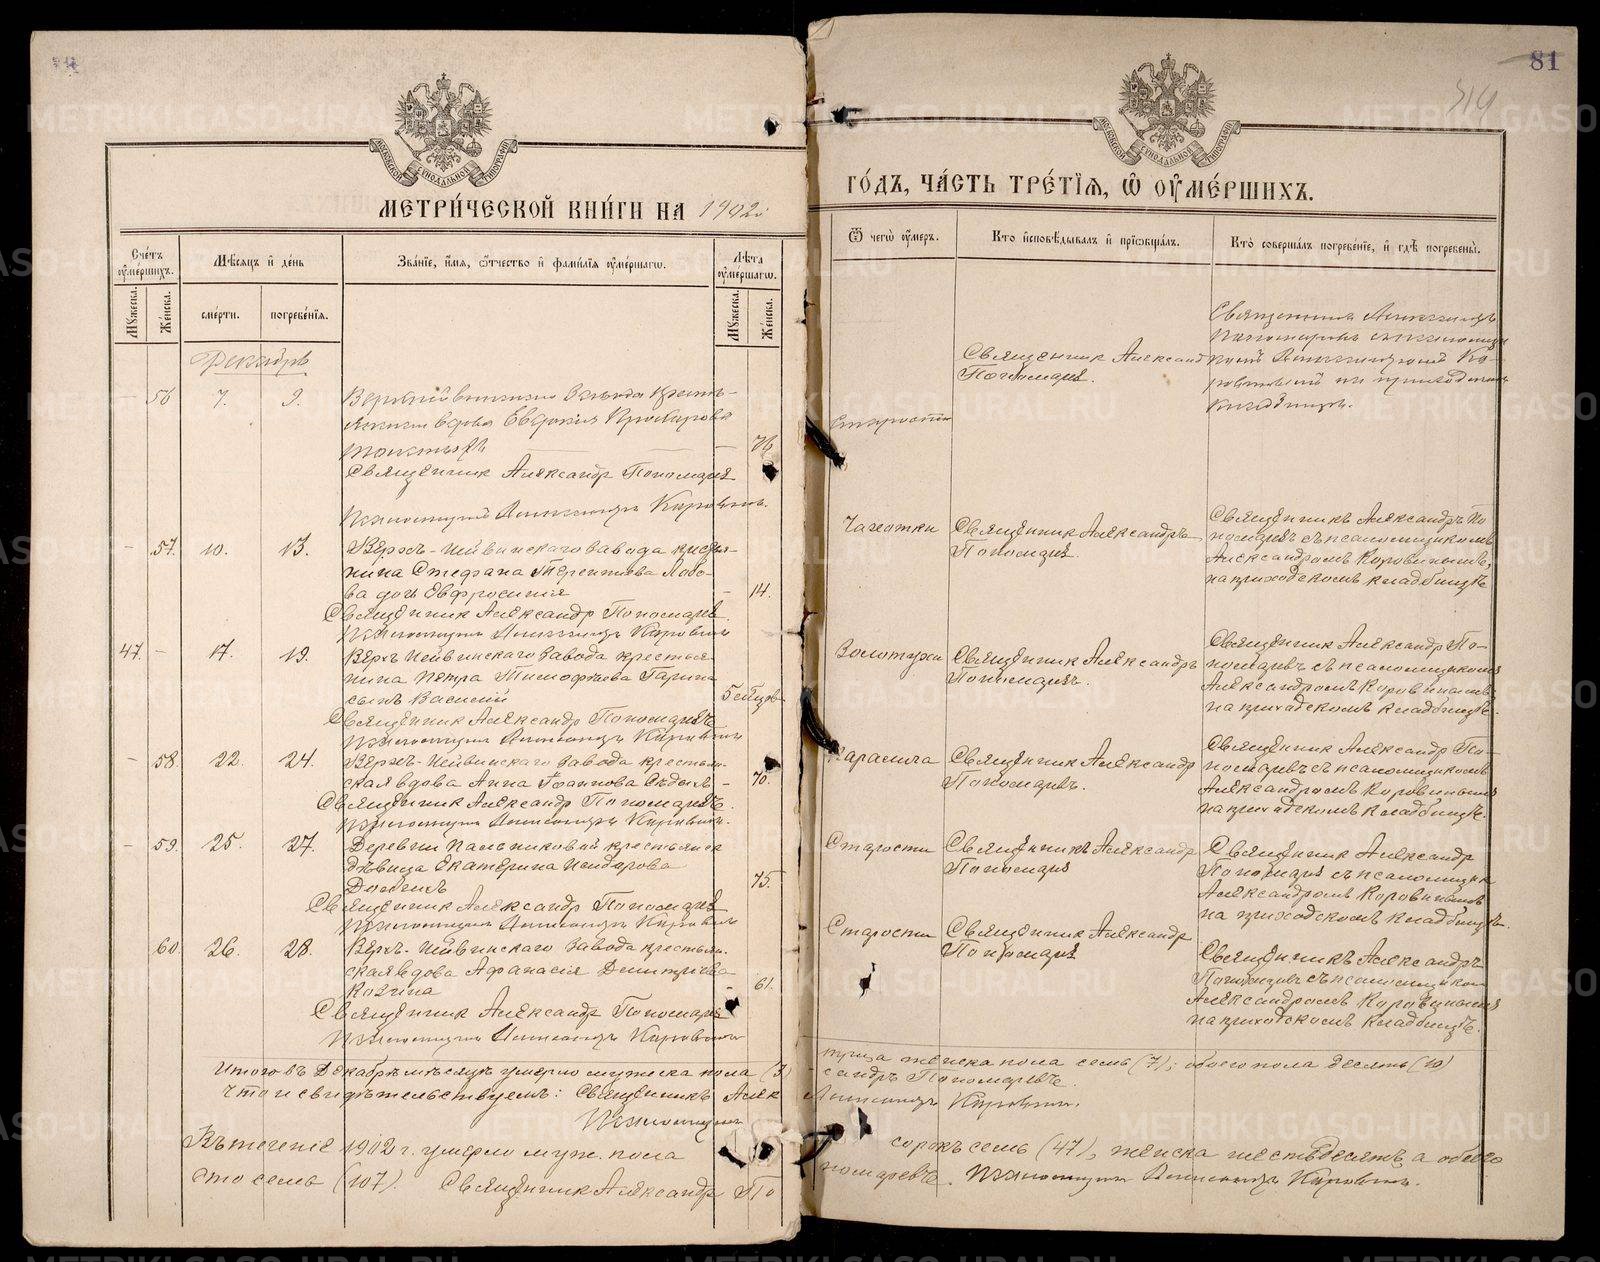 81
МЕТРИ́ЧЕСКОЙ КНИ́ГИ НА 1902
ГО́ДЪ, ЧА́СТЬ ТРЕ́ТЇѦ, Ѽ ОУ҆МЕ́РШИХЪ.
Сче́тъ оу҆ме́ршихъ.
Мѣ́сѧцъ и҆ де́нь
Зва́нїе, и҆́мѧ, ѻ҆́тчество и҆ фами́лїѧ оу҆ме́ршагѡ.
Лѣ́та оу҆ме́ршагѡ.
Ѿ чегѡ̀ оу҆́меръ.
Кто̀ и҆сповѣ́дывалъ и҆ прїѡбща́лъ.
Кто̀ соверша́лъ погребе́нїе, и҆ гдѣ̀ погребены̀.
Мꙋ́жеска.
Же́нска.
сме́рти.
погребе́нїѧ.
Мꙋ́жеска.
Же́нска.
Декабрь
56
7.
9.
вдова Евдокия
76
Священникъ Александръ Пономаревъ
Псаломщикъ Александръ Коровинъ.
старости
Священник Александръ
Пономарев.
Священник Александръ
Пономаревъ
на приходском
кладбище.
- 57.
10.
13.
Верхъ-Нейвинскаго завода крестья-
нина Стефана Терентьева
дочь Евфросиния
- 14.
Священник Александр Пономарев.
Псаломщикъ Александръ Коровинъ
Чахотки
Священник Александръ
Пономарев
Священникъ Александръ По
номаревъ съ псаломщикомъ
Александромъ Коровинымъ,
на приходскомъ кладбищѣ
47. -
17.
19.
Верхъ Нейвинскаго завода крестья-
нина Петра Тимофѣева Гарина
сынъ Василий
5 мѣсяцев
Священник Александр Пономаревъ
Псаломщикъ Александръ Коровинъ
Золотухи
Священник Александръ
Пономаревъ.
Священник Александр По-
номаревъ съ псаломщикомъ
Александромъ Коровинымъ
на приходскомъ кладбищѣ.
- 58.
22.
24.
Верхъ-Нейвинскаго завода крестьян-
ская вдова Анна
- 70.
Священник Александр Пономаревъ.
Псаломщикъ Александръ Коровинъ.
Паралича
Священник Александр
Пономаревъ.
Священник Александр По-
номаревъ съ псаломщикомъ
Александромъ Коровинымъ
на приходскомъ кладбищѣ.
- 59.
25.
27.
Деревни Пальниковой крестьянск
дѣвица Екатерина
75.
Священник Александр Пономарев
Псаломщикъ Александръ Коровинъ
Старости
Священникъ Александр
Пономарев
Священник Александр
Пономарев съ псаломщик
Александромъ Коровинымъ
на приходскомъ кладбищѣ.
60.
26.
28.
Верх-Нейвинскаго завода крестьян-
ская вдова Афанасия Димитриева
- 61.
Священник Александр Пономарев
Псаломщикъ Александръ Коровинъ
Старости
Священник Александр
Пономарев
Священникъ Александръ
Пономаревъ съ псаломщиком
Александромъ Коровинымъ
на приходскомъ кладбищѣ.
Итого въ Декабрѣ мѣсяцѣ умерло мужска пола (3)
женска пола семь (7); обоего пола десять (10)
Что и свидѣтельствуемъ: Священникъ Алек
сандръ Пономаревъ.
Псаломщикъ
Александръ Коровинъ.
Въ течение 1902 г. умерло муж. пола
сорокъ семь (47), женска шестьдесятъ, а обоего
сто семь (107). Священник Александр По
номаревъ. Псаломщикъ Александръ Коровинъ.
METRIKI.GASO-URAL.RU